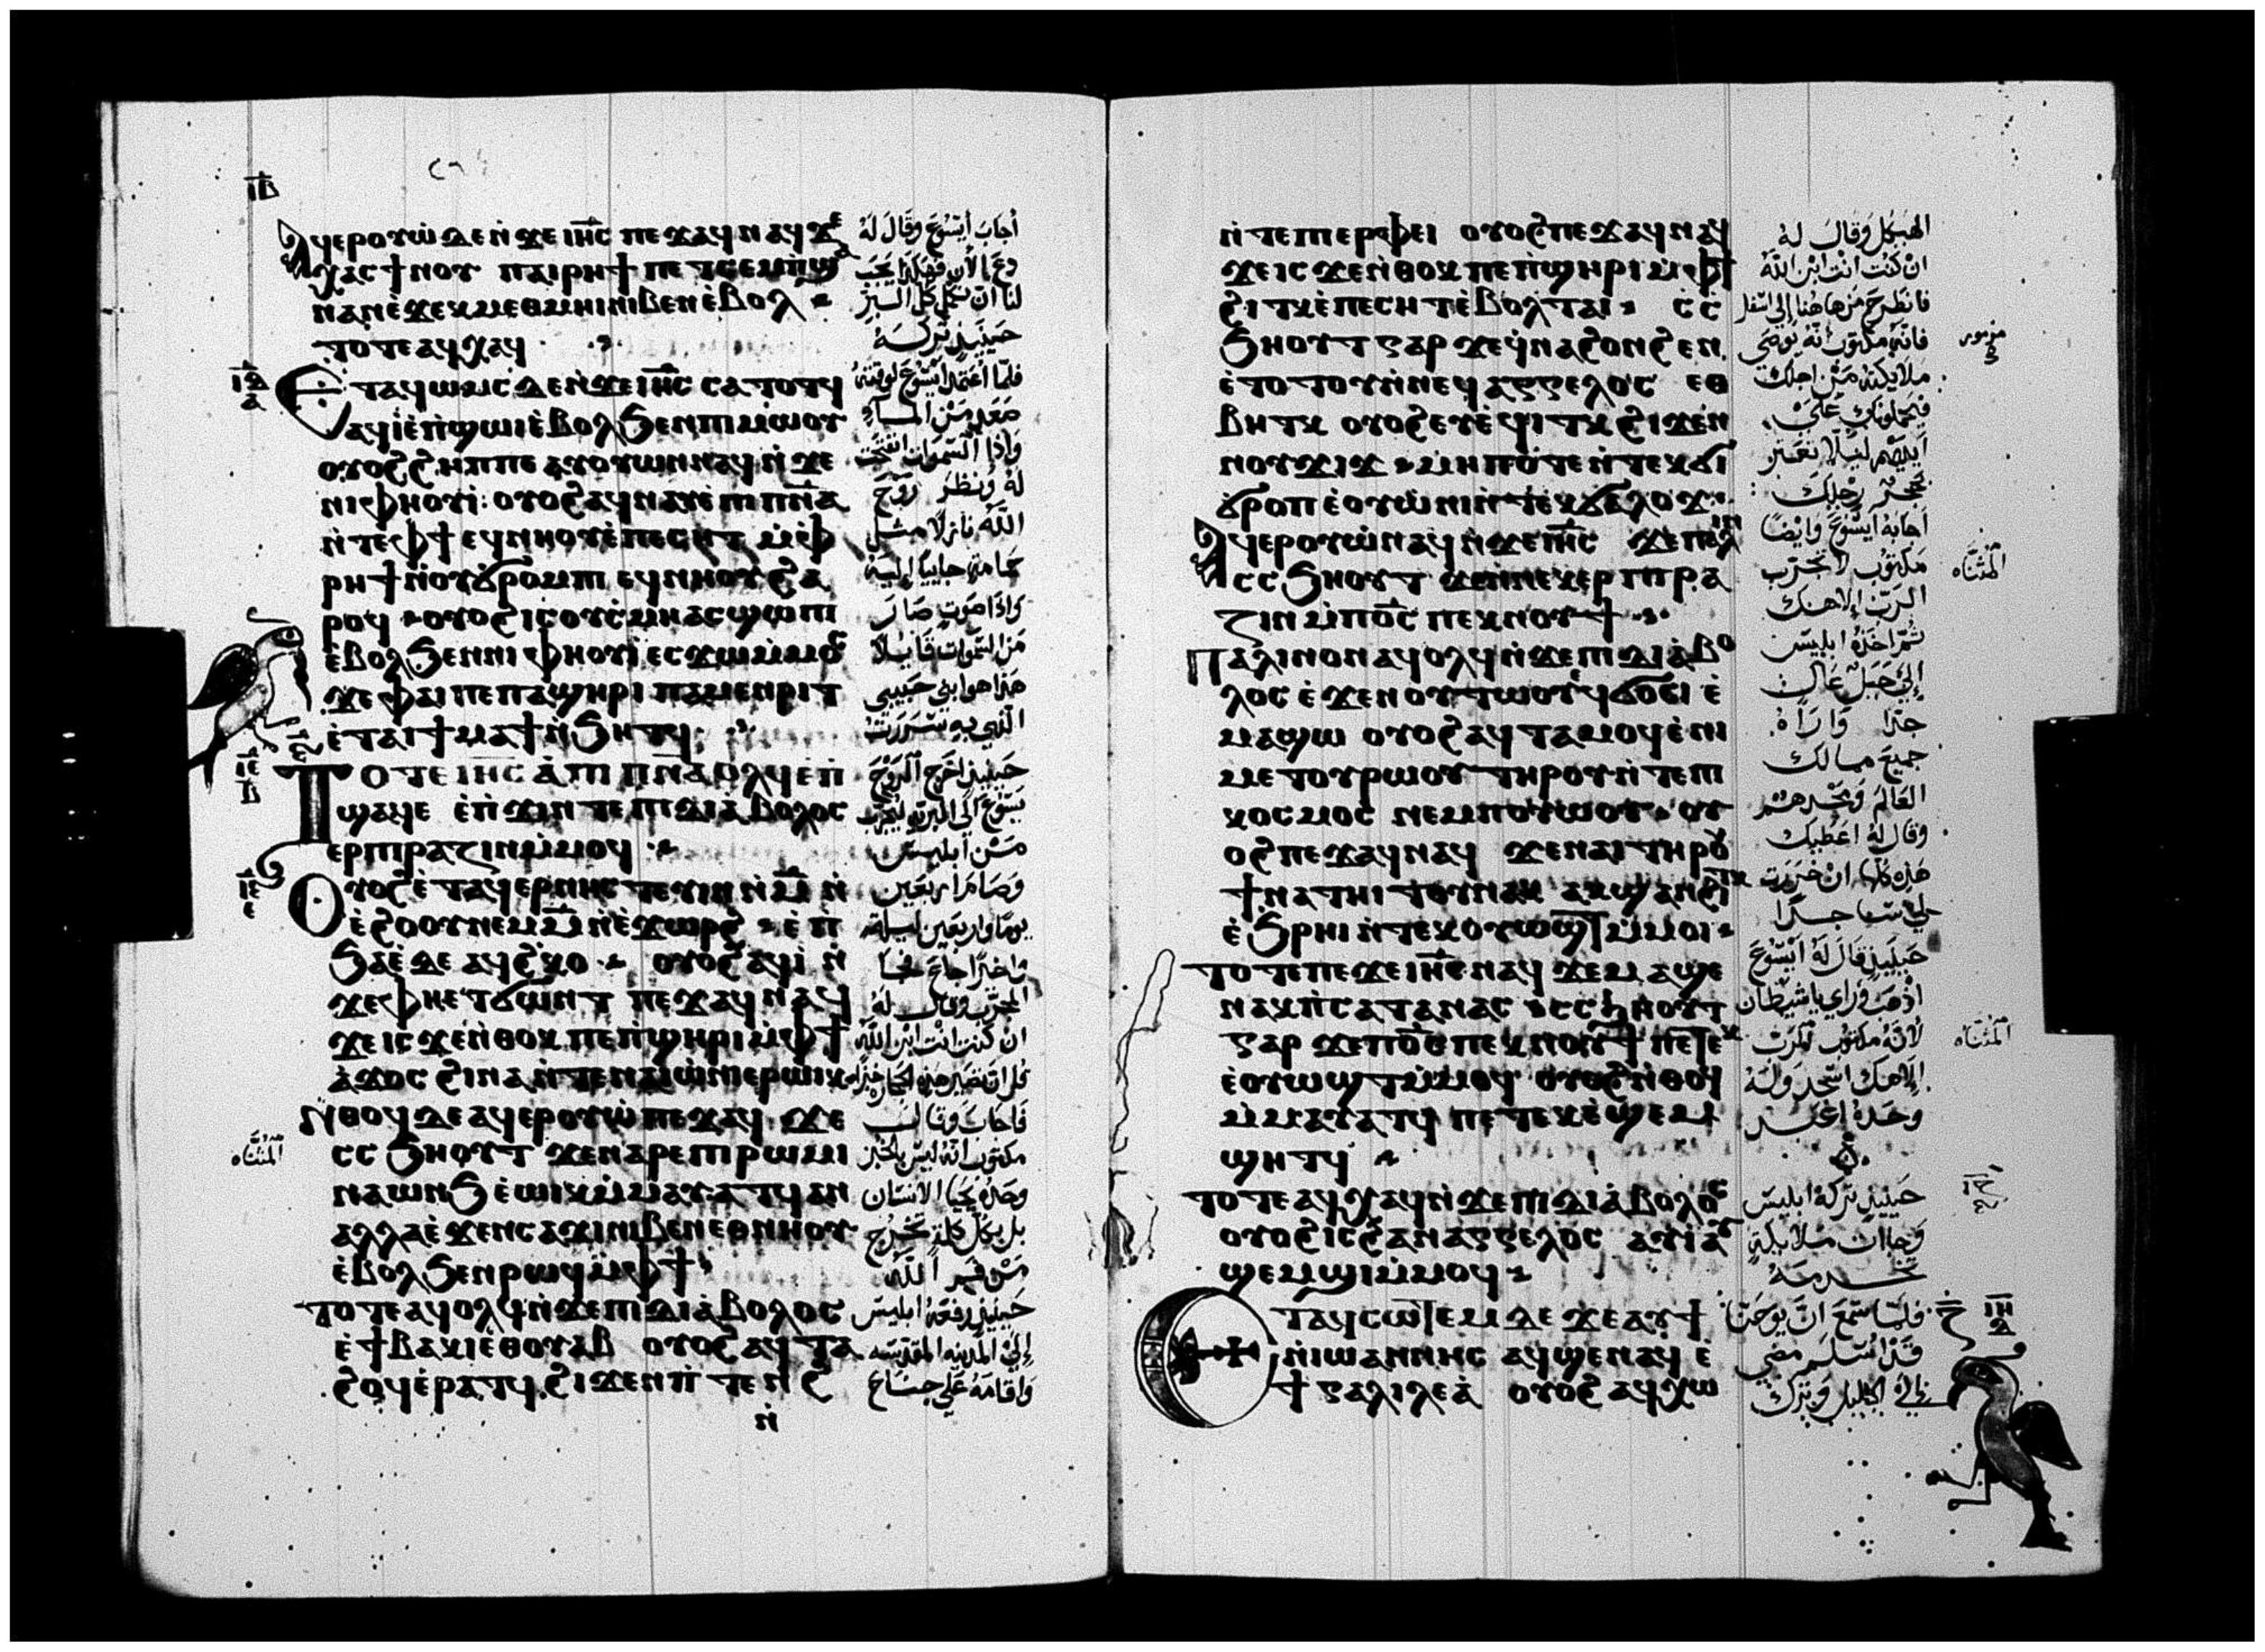 ⲓⲃ
ⲁϥⲉⲣⲟⲩⲱ ⲇⲉ ⲛ̇ϫⲉ ⲓⲏ̅ⲥ ⲡⲉϫⲁϥ ⲛⲁϥ ϫⲉ
ⲭⲁⲥ ϯⲛⲟⲩ ⲡⲁⲓⲣⲏϯ ⲡⲉⲧⲥⲉⲙⲡ̇ϣⲁ
ⲛⲁⲛ ⲉ̇ϫⲉⲕ ⲙⲉⲑⲙⲏⲓ ⲛⲓⲃⲉⲛ ⲉ̇ⲃⲟⲗ
ⲧⲟⲧⲉ ⲁϥⲭⲁϥ
ⲉⲧⲁϥϭⲓⲱⲙⲥ ⲇⲉ ⲛ̇ϫⲉ ⲓⲏ̅ⲥ ⲥⲁⲧⲟⲧϥ
ⲁϥⲓ̇ ⲉ̇ⲡ̇ϣⲱⲓ ⲉ̇ⲃⲟⲗ ϧⲉⲛ ⲡⲓⲙⲱⲟⲩ
ⲟⲩⲟϩ ϩⲏⲡⲡⲉ ⲁⲩⲟⲩⲱⲛ ⲛⲁϥ ⲛ̇ϫⲉ
ⲛⲓⲫⲏⲟⲩⲓ̇ ⲟⲩⲟϩ ⲁϥⲛⲁⲩ ⲉ̇ⲡⲓⲡⲛ̅ⲁ
ⲛ̇ⲧⲉ ⲫϯ ⲉϥⲛⲏⲟⲩ ⲉ̇ⲡⲉⲥⲏⲧ ⲙ̇ⲫ
ⲣⲏϯ ⲛ̇ⲟⲩϭⲣⲟⲙⲡⲓ ⲉϥⲛⲏⲟⲩ ϩⲁ
ⲣⲟϥ ⲟⲩⲟϩ ⲓⲥ ⲟⲩⲥ̇ⲙⲏ ⲁⲥϣⲱⲡⲓ
ⲉ̇ⲃⲟⲗ ϧⲉⲛ ⲛⲓⲫⲏⲟⲩⲓ̇ ⲉⲥϫⲱ ⲙ̇ⲙⲟⲥ
ϫⲉ ⲫⲁⲓ ⲡⲉ ⲡⲁϣⲏⲣⲓ ⲡⲁⲙⲉⲛⲣⲓⲧ
ⲉ̇ⲧⲁⲓϯⲙⲁϯ ⲛ̇ϧⲏⲧϥ
ⲧⲟⲧⲉ ⲓⲏ̅ⲥ ⲁ̇ ⲡⲓⲡⲛ̅ⲁ ⲟⲗϥ ⲉ̇ⲡ̇
ϣⲁϥⲉ ⲉ̇ⲡ̇ϫⲓⲛⲧⲉ ⲡⲓⲇⲓⲁ̇ⲃⲟⲗⲟⲥ
ⲉⲣⲡⲓⲣⲁⲍⲓⲛ ⲙ̇ⲙⲟϥ
ⲟⲩⲟϩ ⲉ̇ⲧⲁϥⲉⲣⲛⲏⲥⲧⲉⲩⲓⲛ ⲛ̇ⲙ̅ ⲛ̇
ⲉ̇ϩⲟⲟⲩ ⲛⲉⲙ ⲙ̅ ⲛ̇ⲉ̇ϫⲱⲣϩ ⲉ̇ⲡ̇
ϧⲁⲉ̇ ⲇⲉ ⲁϥϩ̇ⲕⲟ ⲟⲩⲟϩ ⲁϥⲓ̇ ⲛ̇
ϫⲉ ⲫⲏⲉⲧϭⲱⲛⲧ ⲡⲉϫⲁϥ ⲛⲁϥ
ϫⲉ ⲓⲥϫⲉ ⲛ̇ⲑⲟⲕ ⲡⲉ ⲡ̇ϣⲏⲣⲓ ⲙ̇ⲫϯ
ⲁ̇ϫⲟⲥ ϩⲓⲛⲁ ⲛ̇ⲧⲉ ⲛⲁⲓⲱ̇ⲛⲓ ⲉⲣⲱⲓⲕ
ⲛ̇ⲑⲟϥ ⲇⲉ ⲁϥⲉⲣⲟⲩⲱ̇ ⲡⲉϫⲁϥ ϫⲉ
ⲥⲥϧⲏⲟⲩⲧ ϫⲉ ⲛⲁⲣⲉ ⲡⲓⲣⲱⲙⲓ
ⲛⲁⲱⲛϧ ⲉ̇ⲱⲓⲕ ⲙ̇ⲙⲁⲩⲁⲧϥ ⲁⲛ
ⲁⲗⲗⲁ ⲉ̇ϫⲉⲛ ⲥⲁϫⲓ ⲛⲓⲃⲉⲛ ⲉⲑⲛⲏⲟⲩ
ⲉ̇ⲃⲟⲗ ϧⲉⲛ ⲣⲱϥ ⲙ̇ⲫϯ
ⲧⲟⲧⲉ ⲁϥⲟⲗϥ ⲛ̇ϫⲉ ⲡⲓⲇⲓⲁ̇ⲃⲟⲗⲟⲥ
ⲉ̇ϯⲃⲁⲕⲓ ⲉ̇ⲑⲟⲩⲁⲃ ⲟⲩⲟϩ ⲁϥⲧⲁ
ϩⲟϥ ⲉ̇ⲣⲁⲧϥ ϩⲓϫⲉⲛ ⲡ̇ⲧⲉⲛϩ
ⲛ̇
أجاب أيسوع وقال له
دع الأن فهكذا يجب
لنا ان نكمل كل البر
حينيذ تركه
فلما اعتمد ايسوع لوقته
صعد من الماء
واذا السموات انفتحت
له ونظر روح
الله نازلا مثل
حمامة جاييا إليه
واذا صوت صار
من السموات قايلا
هذا هو ابني حبيبي
الذي به سررت
حينيذ اخرج الروح
يسوع الى البرية ليجرب
من ابليس
وصام اربعين
يوما واربعين ليلة
واخيرا جاع فجا
المجرب وقال له
ان كنت انت ابن الله
قل ان تصير هذه الحجارة خبزا
فاجاب وقال
مكتوب انه ليس بالخبز
وحده يحيا الانسان
بل بكل كلمة تخرج
من فم الله
حينيذ رفعه ابليس
إلى المدينه المقدسه
واقامه على جناح
ⲛ̇ⲧⲉ ⲡⲓⲉⲣⲫⲉⲓ ⲟⲩⲟϩ ⲡⲉϫⲁϥ ⲛⲁϥ
ϫⲉ ⲓⲥϫⲉ ⲛ̇ⲑⲟⲕ ⲡⲉ ⲡ̇ϣⲏⲣⲓ ⲙ̇ⲫϯ
ϩⲓⲧⲕ ⲉ̇ⲡⲉⲥⲏⲧ ⲉ̇ⲃⲟⲗ ⲧⲁⲓ ⲥ̇ⲥ̇
ϧⲏⲟⲩⲧ ⲅⲁⲣ ϫⲉ ϥ̇ⲛⲁϩⲟⲛϩⲉⲛ
ⲉ̇ⲧⲟⲧⲟⲩ ⲛ̇ⲛⲉϥⲁⲅⲅⲉⲗⲟⲥ ⲉⲑ
ⲃⲏⲧⲕ ⲟⲩⲟϩ ⲉⲩⲉ̇ϥⲓⲧⲕ ϩⲓϫⲉⲛ
ⲛⲟⲩϫⲓϫ ⲙⲏⲡⲟⲧⲉ ⲛ̇ⲧⲉⲕϭⲓ
ϭⲣⲟⲡ ⲉ̇ⲟⲩⲱ̇ⲛⲓ ⲛ̇ⲧⲉⲕϭⲁⲗⲟϫ
ⲁϥⲉⲣⲟⲩⲱ̇ ⲛⲁϥ ⲛ̇ϫⲉ ⲓⲏ̅ⲥ ϫⲉ ⲡⲁⲗⲓⲛ
ⲥⲥϧⲏⲟⲩⲧ ϫⲉ ⲛ̇ⲛⲉⲕⲉⲣⲡⲓⲣⲁ
ⲍⲓⲛ ⲙ̇ⲡⲟ̅ⲥ ⲡⲉⲕⲛⲟⲩϯ
ⲡⲁⲗⲓⲛ ⲟⲛ ⲁϥⲟⲗϥ ⲛ̇ϫⲉ ⲡⲓⲇⲓⲁ̇ⲃⲟ
ⲗⲟⲥ ⲉ̇ϫⲉⲛ ⲟⲩⲧⲱⲟⲩ ⲉϥϭⲟⲥⲓ ⲉ̇
ⲙⲁϣⲱ ⲟⲩⲟϩ ⲁϥⲧⲁⲙⲟϥ ⲉ̇ⲛⲓ
ⲙⲉⲧⲟⲩⲣⲱⲟⲩ ⲧⲏⲣⲟⲩ ⲛ̇ⲧⲉ ⲡⲓ
ⲕⲟⲥⲙⲟⲥ ⲛⲉⲙ ⲡⲟⲩⲱⲟⲩ ⲟⲩ
ⲟϩ ⲡⲉϫⲁϥ ⲛⲁϥ ϫⲉ ⲛⲁⲓ ⲧⲏⲣⲟⲩ
ϯⲛⲁⲧⲏⲓⲧⲟⲩ ⲛⲁⲕ ⲁⲕϣⲁⲛϩⲓⲧⲕ
ⲉ̇ϧⲣⲏⲓ ⲛ̇ⲧⲉⲕⲟⲩⲱϣⲧ ⲙ̇ⲙⲟⲓ
ⲧⲟⲧⲉ ⲡⲉϫⲉ ⲓⲏ̅ⲥ ⲛⲁϥ ϫⲉ ⲙⲁϣⲉ
ⲛⲁⲕ ⲡ̇ⲥⲁⲧⲁⲛⲁⲥ ⲥⲥϧⲏⲟⲩⲧ
ⲅⲁⲣ ϫⲉ ⲡⲟ̅ⲥ ⲡⲉⲕⲛⲟⲩϯ ⲡⲉⲧⲉⲕ
ⲉ̇ⲟⲩⲱϣⲧ ⲙ̇ⲙⲟϥ ⲟⲩⲟϩ ⲛ̇ⲑⲟϥ
ⲙ̇ⲙⲁⲩⲁⲧϥ ⲡⲉⲧⲉⲕⲉ̇ϣⲉⲙ
ϣⲏⲧϥ
ⲧⲟⲧⲉ ⲁϥⲭⲁϥ ⲛ̇ϫⲉ ⲡⲓⲇⲓⲁ̇ⲃⲟⲗⲟⲥ
ⲟⲩⲟϩ ⲓⲥ ϩⲁⲛⲁⲅⲅⲉⲗⲟⲥ ⲁⲩⲓ̇ ⲁⲩ
ϣⲉⲙϣⲓ ⲙ̇ⲙⲟϥ
ⲉⲧⲁϥⲥⲱⲧⲉⲙ ⲇⲉ ϫⲉ ⲁⲩϯ
ⲛ̇ⲓⲱⲁⲛⲛⲏⲥ ⲁϥϣⲉ ⲛⲁϥ ⲉ̇
ϯⲅⲁⲗⲓⲗⲉⲁ̇ ⲟⲩⲟϩ ⲁϥⲭⲱ
الهيكل وقال له
ان كنت انت ابن الله
فانطرح من هاهنا إلى اسفل
فانه مكتوب انه يوصي
ملايكته من اجلك
فيحملونك على
ايديهم ليلا تعثر
بحجر رجلك
اجابه ايسوع وايضا
مكتوب لا تجرب
الرب إلاهك
ثم اخذه ابليس
إلى جبل عال
جدا واراه
جميع ممالك
العالم ومجدهم
وقال له اعطيك
هذه كلها ان خررت
لي ساجدا
حينيذ قال له ايسوع
اذهب وراي يا شيطان
لانه مكتوب للرب
إلاهك اسجد وله
وحده اعبد
حينيذ تركه ابليس
وجاات ملايكة
تخدمه
فلما سمع ان يوحنا
قد اسلم مضى
إلى الجليل وترك